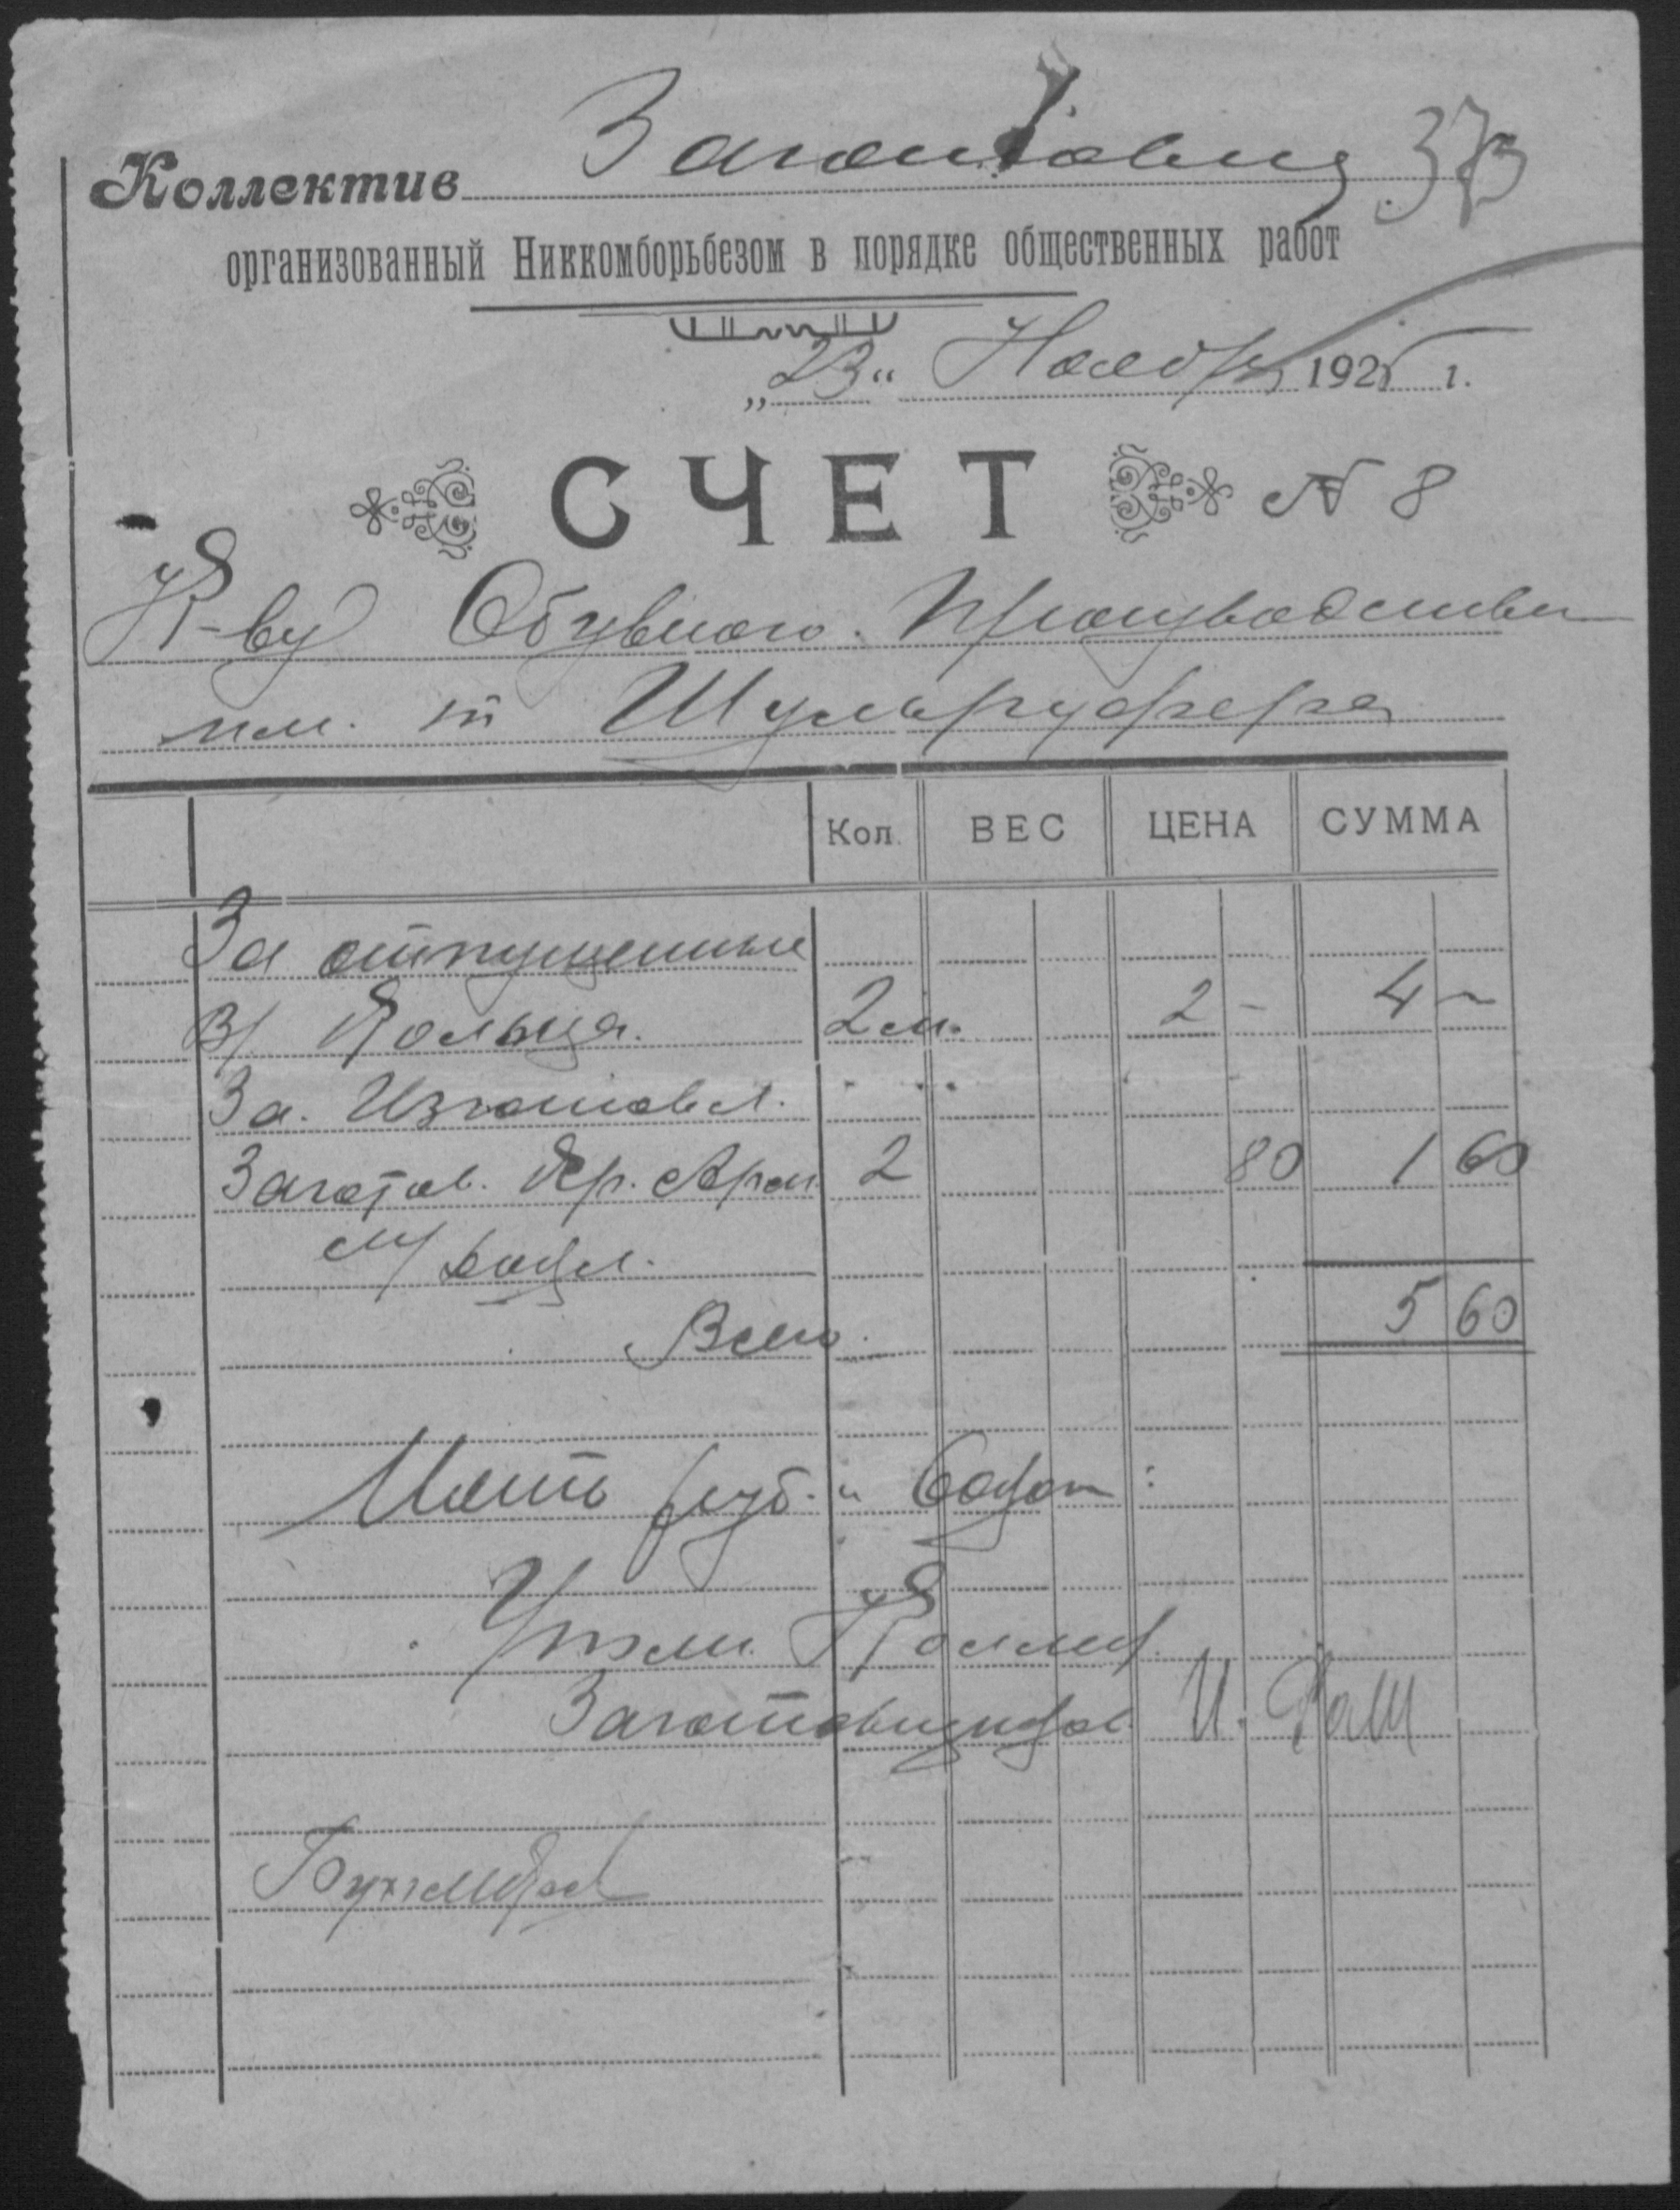 Коллектив Заготовщ 373
организованный Никкомборьбезом в порядке общественных работ
„23“ Ноября 1925 г.
СЧЕТ N 8
К-ву Обувного Производства
им. т Шульруфера
Кол. ВЕС ЦЕНА СУММА
За отпущенные
Кольца. 2 2 - 4 -
За. Изготовл.
Заготов. Кр. Арм 2 80 1 60
Всего 5 60
Пять руб. и 60коп
Упол. Коллек.
Заготовщиков И.